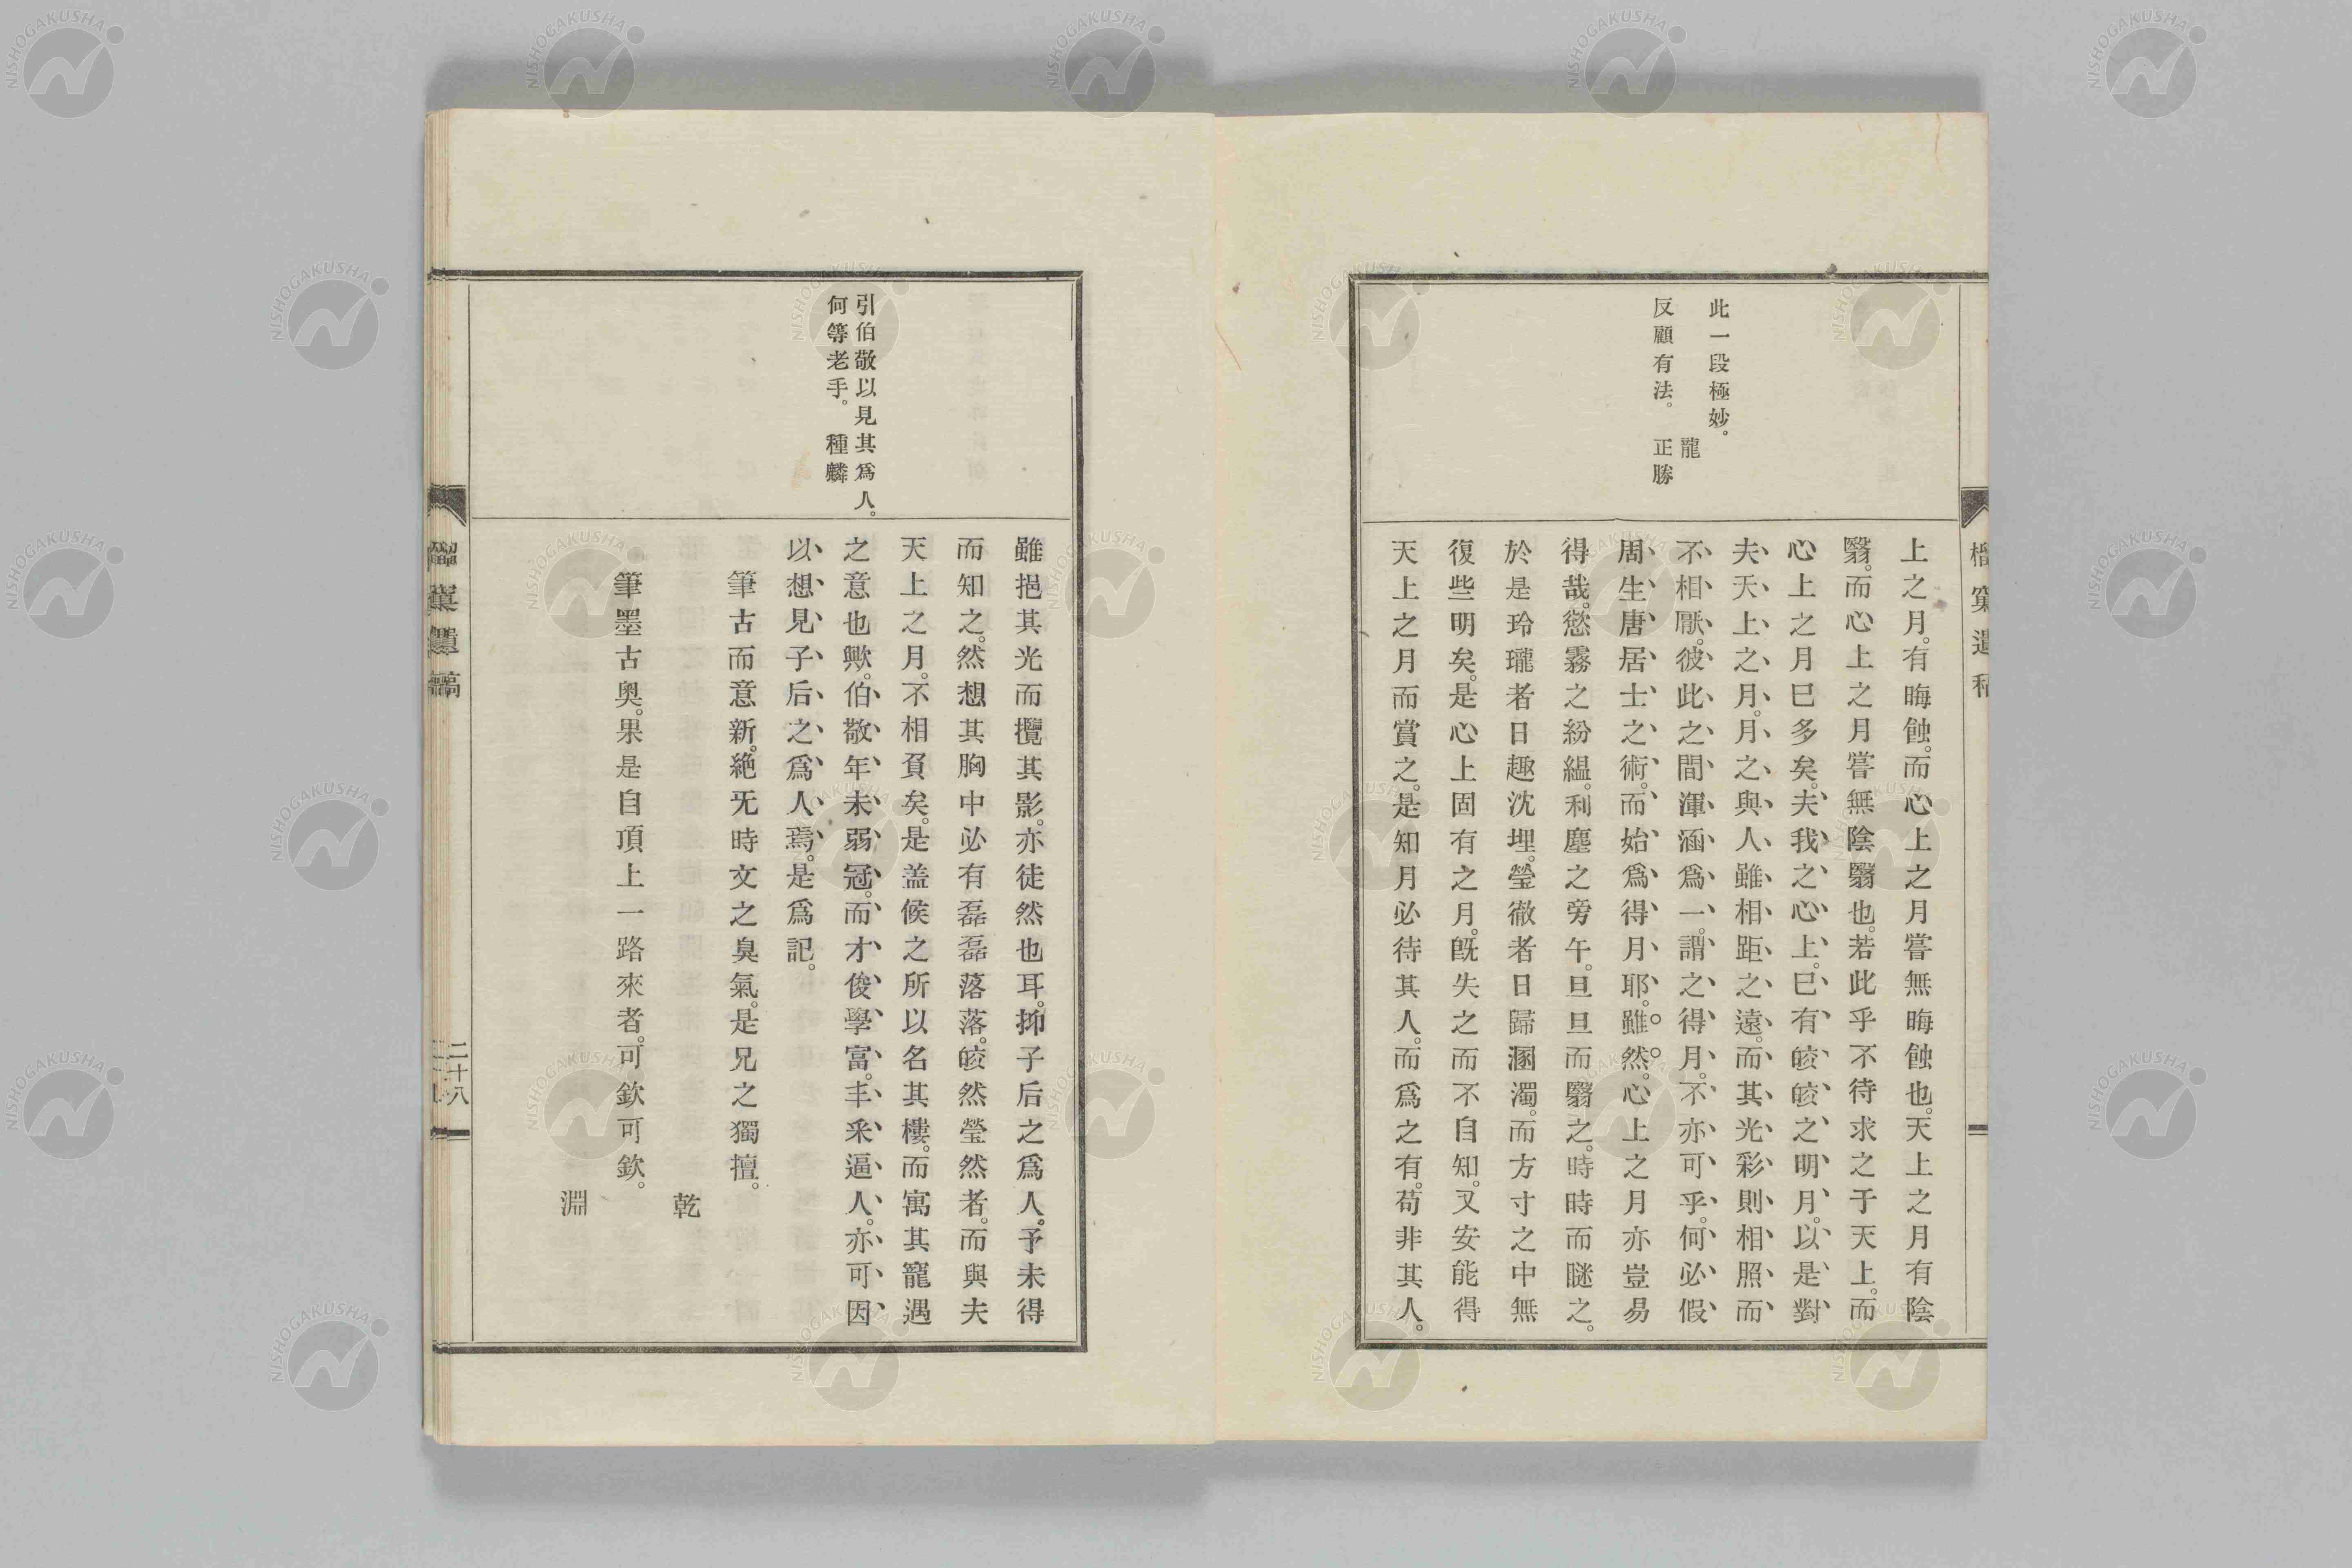 此一段極妙。
龍
反顧有法。　正勝
上之月。有晦蝕。而心上之月嘗無晦蝕也。天上之月有陰
翳。而心上之月嘗無陰翳也。若此乎不待求之于天上。而
心上之月巳多矣。夫我之心上。巳有皎皎之明月。以是對
夫天上之月。月之與人雖相距之遠。而其光彩則相照而
不相厭。彼此之間渾涵爲一。謂之得月。不亦可乎。何必假
周生唐居士之術。而始爲得月耶。雖然。心上之月亦豈易
得哉。慾霧之紛縕。利塵之旁午。旦旦而翳之。時時而瞇之。
於是玲瓏者日趣沈埋。瑩徹者日歸溷濁。而方寸之中無
復些明矣。是心上固有之月。旣失之而不自知。又安能得
天上之月而賞之。是知月必待其人。而爲之有。苟非其人。
引伯敬以見其爲人。
何等老手。　種麟
雖挹其光而攬其影。亦徒然也耳。抑子后之爲人。予未得
而知之。然想其胸中必有磊磊落落。皎然瑩然者。而與夫
天上之月。不相負矣。是蓋候之所以名其樓。而寓其寵遇
之意也歟。伯敬年未弱冠。而才俊學富。丰釆逼人。亦可因
以想見子后之爲人焉。是爲記。
筆古而意新。絶无時文之臭氣。是兄之獨擅。
乾
筆墨古奧。果是自頂上一路來者。可欽可欽。
淵
遺稿
二十八
NISHOGAKUSHA